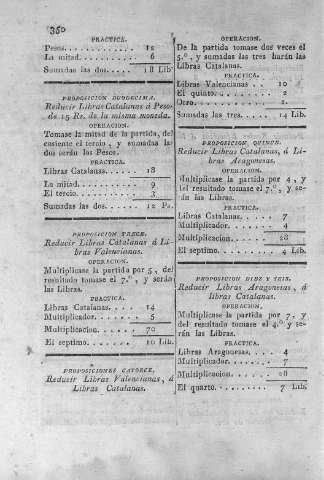 350
PRACTICA.
Pesos. . . . . . . . . . . . . . 12
La mitad. . . . . . . . . . . 6
Sumadas las dos. . . . . 18 Lib.
PROPOSICION DUODECIMA.
Reducir Libras Catalanas á Pesos
de 15 Rs. de la misma moneda.
OPERACION.
Tomase la mitad de la partida, del
cociente el tercio, y sumadas las
dos serán las Pesos.
PRACTICA.
Libras Catalanas. . . . . . 18
La mitad. . . . . . . . . . . 9
El tercio. . . . . . . . . . . 3
Sumadas las dos. . . . . 12 Ps.
PROPOSICION TRECE.
Reducir Libras Catalanas á Li-
bras Valencianas.
OPERACION.
Multiplicase la partida por 5, del
resultado tomase el 7.º, y serán
las Libras.
PRACTICA.
Libras Catalanas. . . . . 14
Multiplicador. . . . . . . 5
Multiplicacion. . . . . . 70
El septimo. . . . . . . . . 10 Lib.
PROPOSICIONES CATORCE.
Reducir Libras Valencianas, á
Libras Catalanas.
OPERACION.
De la partida tomase dos veces el
5.º, y sumadas las tres harán las
Libras Catalanas.
PRACTICA.
Libras Valencianas . . 10
El quinto. . . . . . . . . . 2
Otro. . . . . . . . . . . . . 2
Sumadas las tres. . . . 14 Lib.
PROPOSICION QUINCE.
Reducir Libras Catalanas, á Li-
bras Aragonesas.
OPERACION.
Multiplicase la partida por 4, y
del resultado tomase el 7.º, y se-
rán las Libras.
PRACTICA.
Libras Catalanas. . . . 7
Multiplicador. . . . . . 4
Multiplicacion. . . . . 28
El septimo. . . . . . . . 4 Lib.
PROPOSICION DIEZ Y SEIS.
Reducir Libras Aragonesas, á
libras Catalanas.
OPERACION.
Multiplicase la partida por 7, y
del resultado tomase el 4.º y se-
rán las Libras.
PRACTICA.
Libras Aragonesas. . . . 4
Multiplicador. . . . . . . 7
Multiplicacion. . . . . . 28
El quarto. . . . . . . . . . 7 Lib.